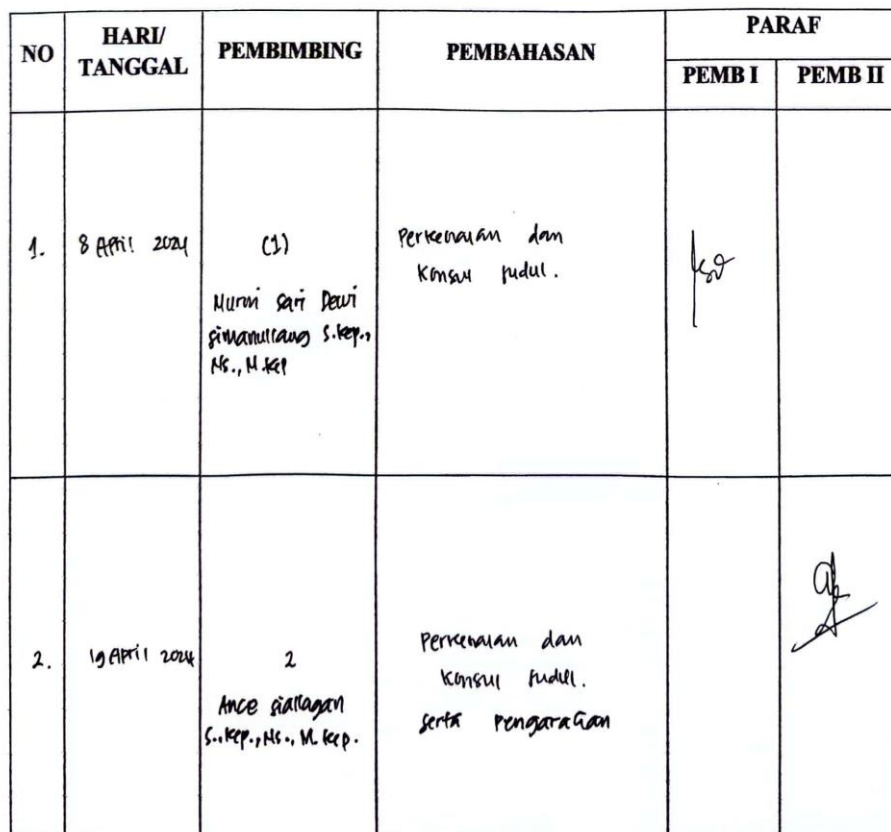 NO
HARI/
TANGGAL
PEMBIMBING
PEMBAHASAN
PARAF
PEMB I
PEMB II
1.
8 April 2024
(1)
Murni Sari Dewi
Simanullang S.Kep.,
Ns., M.Kep
Perkenalan dan
Konsul Judul.
2.
19 April 2024
2
Ance Siallagan
S.,Kep.,Ns., M.Kep.
Perkenalan dan
Konsul Judul.
serta Pengarahan